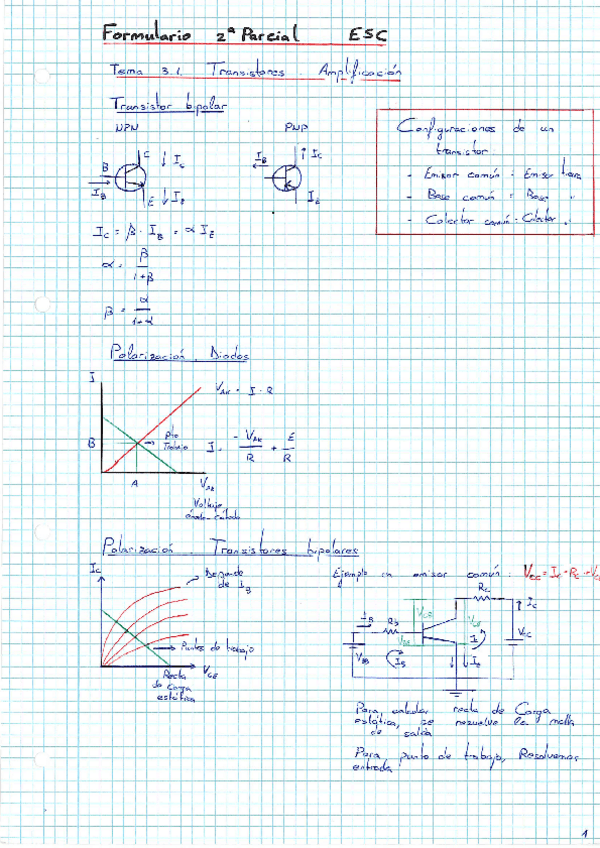 Formulario 2ª Parcial ESC
Tema 3.1. Transistores. Amplificación
Transistor bipolar
NPN
PNP
Configuraciones de un
transistor:
- Emisor común = Emisor tierra
- Base común = Base "
- Colector común = Colector "
B
C
E
I_B
I_C
I_E
I_B
I_C
I_E
I_C = β · I_B = α I_E
α = β / 1+β
β = α / 1-α
Polarización. Diodos
I
V_AK = I · R
B
pto
Trabajo
I = -V_AK / R + E / R
A
V_AK
Voltaje
ánodo-cátodo
Polarización. Transistores bipolares
I_C
Depende
de I_B
Puntos de trabajo
V_CE
Recta
de Carga
estática
Ejemplo en emisor común: V_CC = I_C · R_C + V_C
R_C
I_C
I_B
R_B
V_CE
V_BE
V_BB
V_CC
I_B
I_E
Para calcular recta de Carga
estática, se resuelve la malla
de salida
Para punto de trabajo, Resolvemos
entrada
1